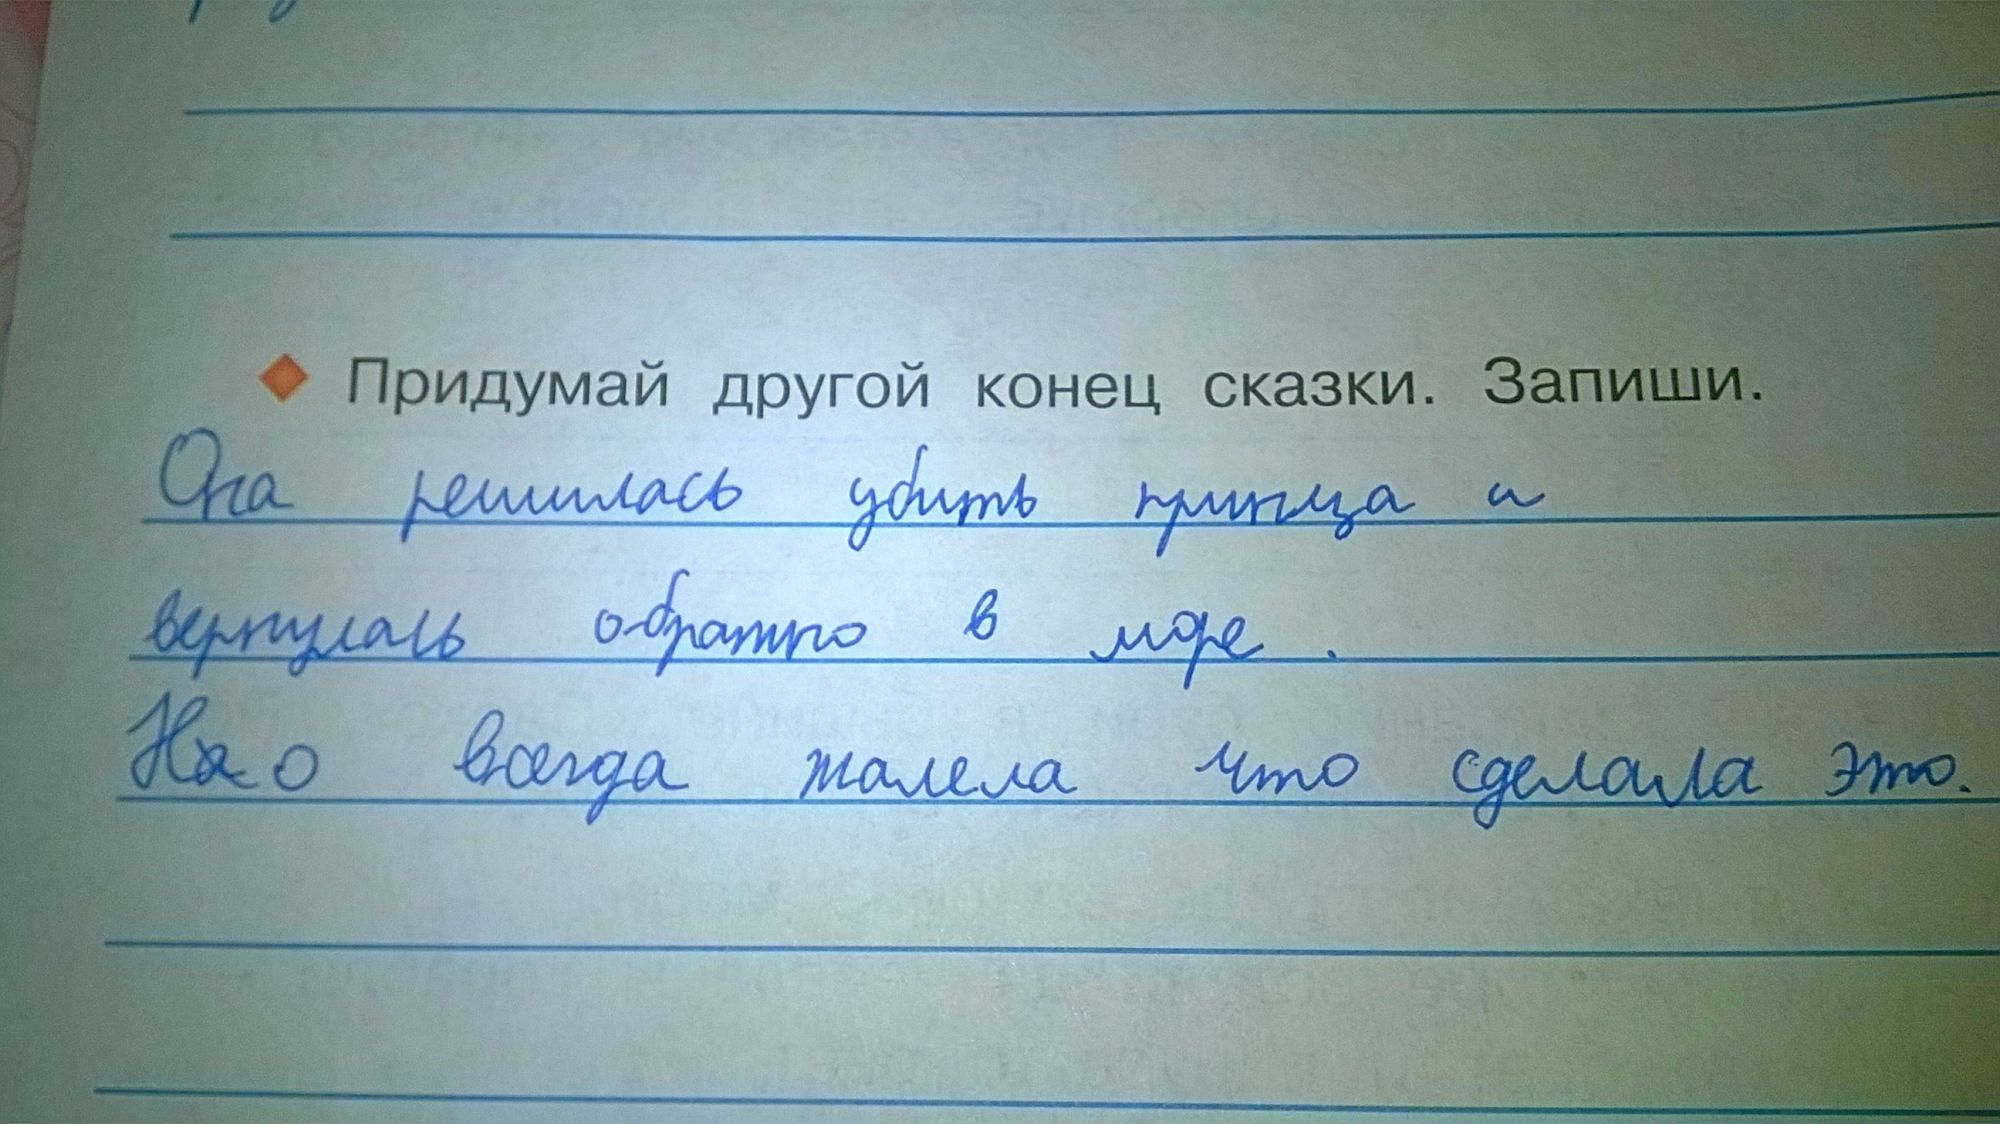 Придумай другой конец сказки. Запиши.
Она решилась убить принца и
вернулась обратно в море.
Но всегда жалела что сделала это.